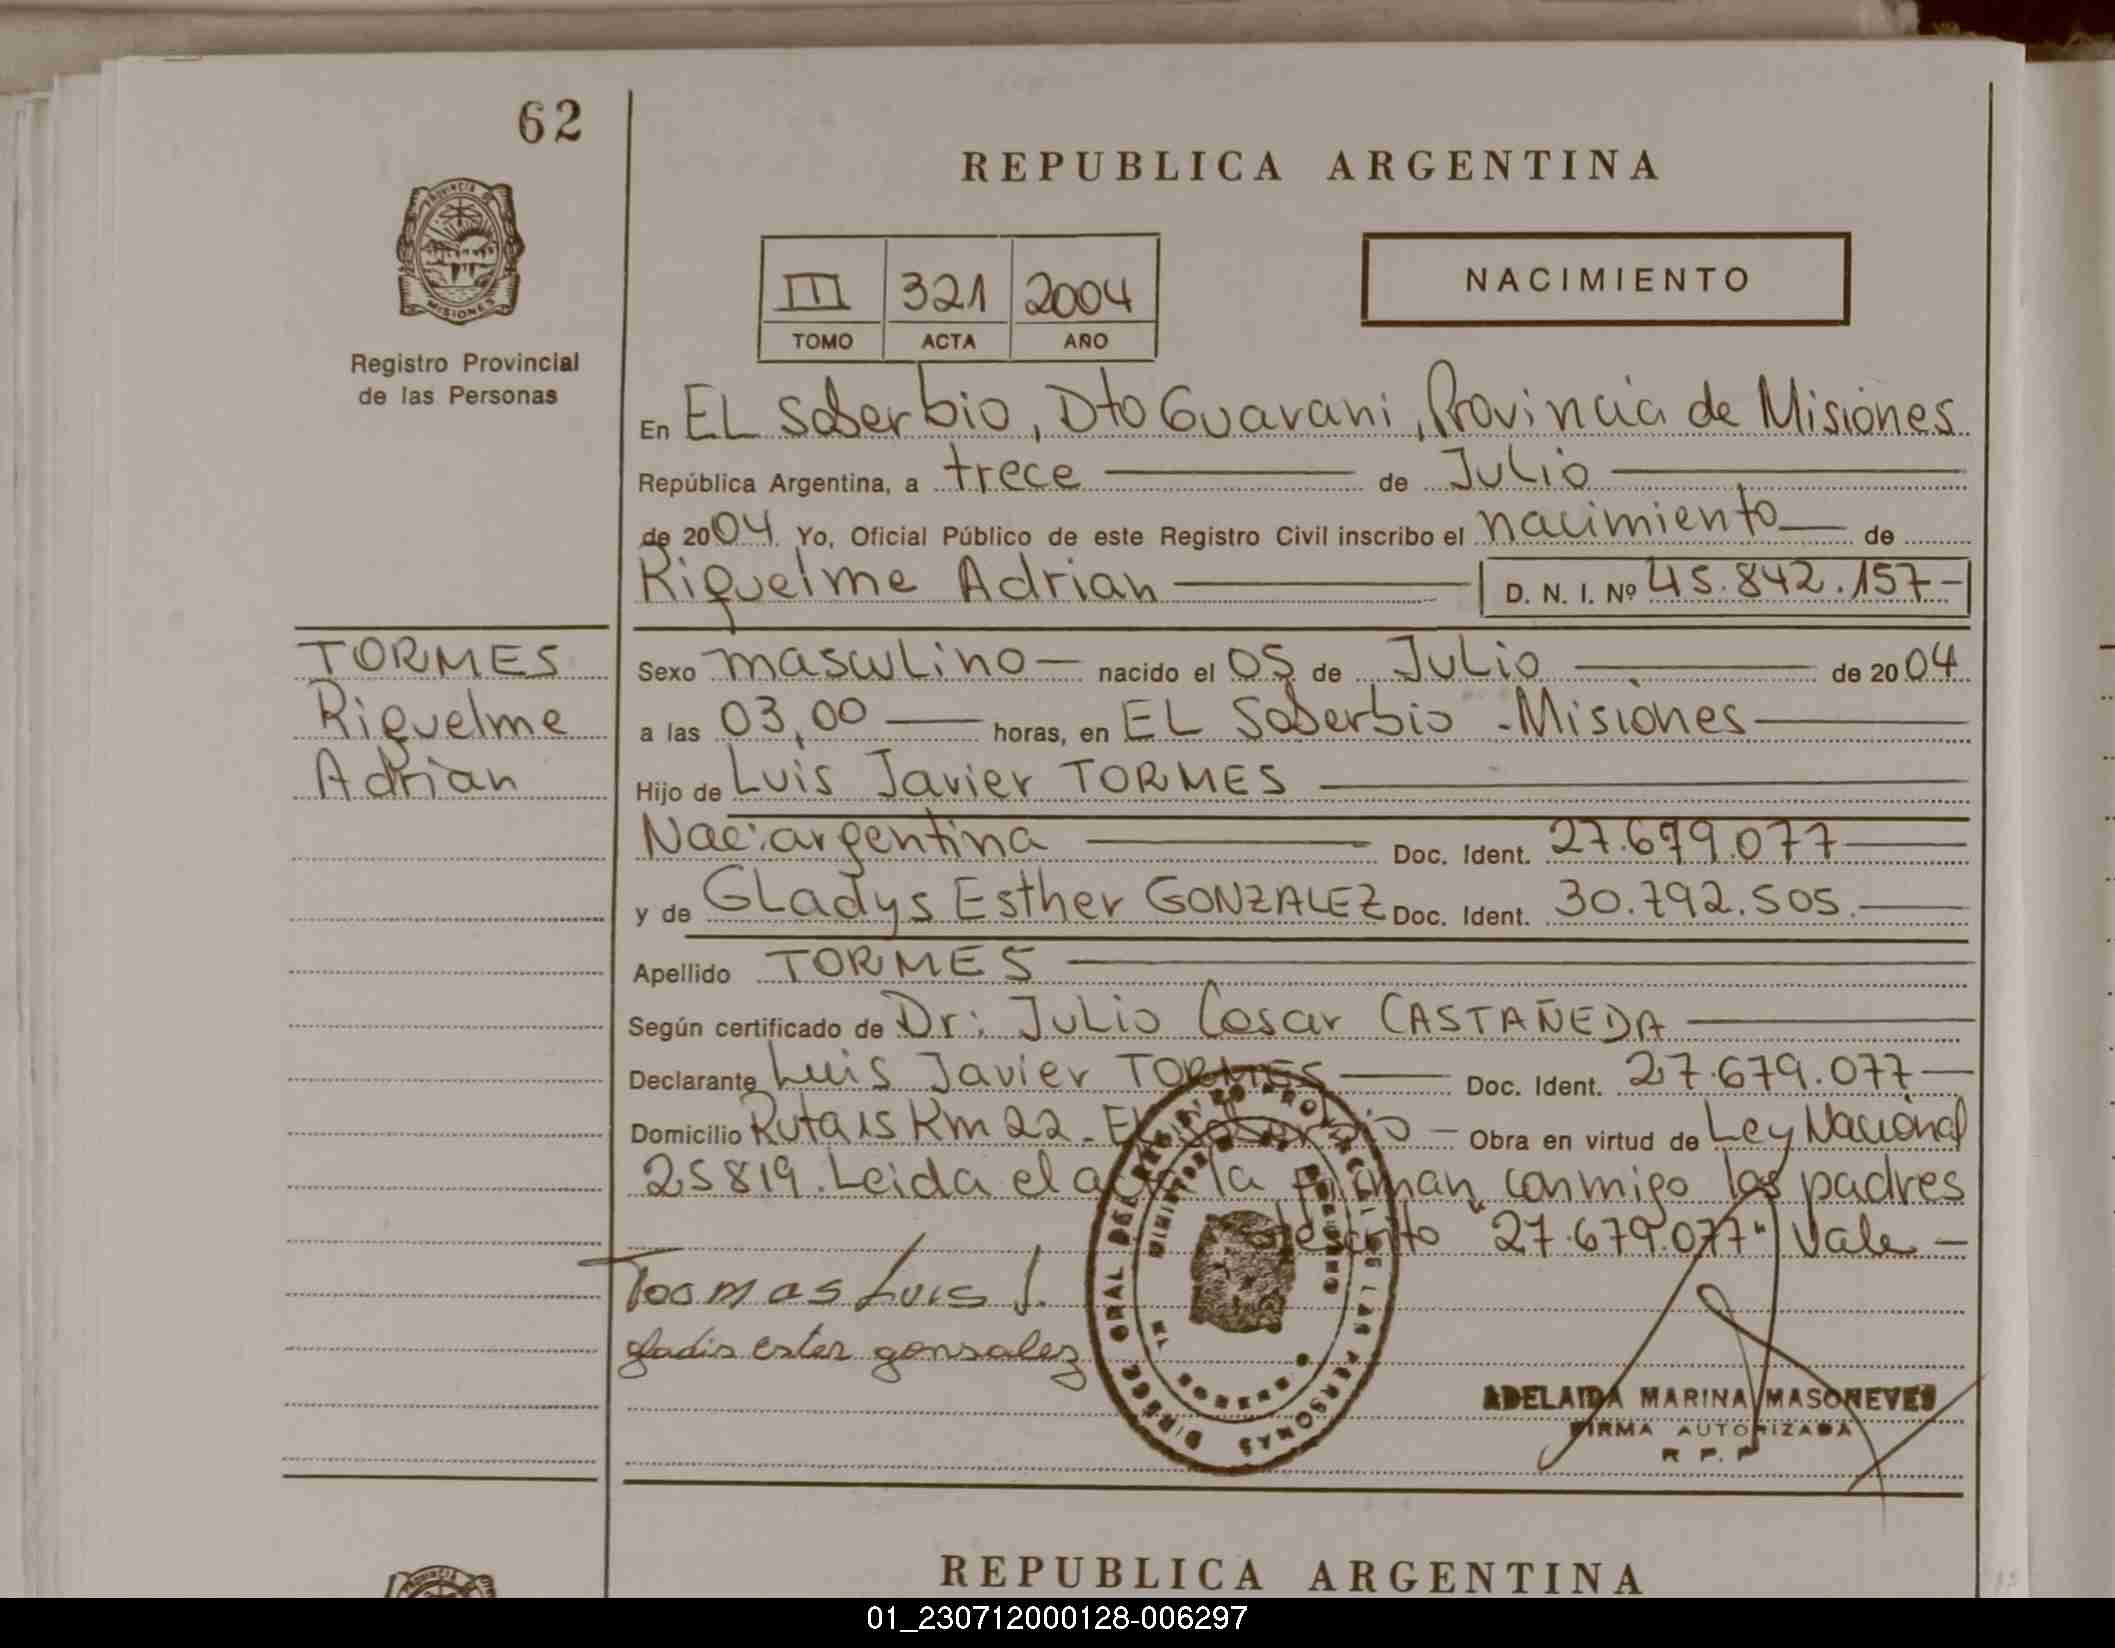 62
REPUBLICA ARGENTINA
PROVINCIA DE
MISIONES
Registro Provincial
de las Personas
III 321 2004
TOMO ACTA AÑO
NACIMIENTO
En EL Soberbio, Dto Guarani, Provincia de Misiones
República Argentina, a trece de Julio
de 2004 Yo, Oficial Público de este Registro Civil inscribo el nacimiento de
Riquelme Adrian D. N. I. Nº 45.842.157-
TORMES
Riquelme
Adrian
Sexo masculino nacido el 05 de Julio de 2004
a las 03,00 horas, en EL Soberbio - Misiones
Hijo de Luis Javier TORMES
Nac: argentina Doc. Ident. 27.679.077
y de GLadys Esther GONZALEZ Doc. Ident. 30.792.505.
Apellido TORMES
Según certificado de Dr: Julio Cesar CASTAÑEDA
Declarante Luis Javier TORMES Doc. Ident. 27.679.077
Domicilio Ruta 15 Km 22 - EL Soberbio - Obra en virtud de Ley Nacional
25819. Leida el acta la firman conmigo los padres
"27.679.077" Vale -
Luis J.
gladis ester gonsalez
DEL REGISTRO PROVINCIAL DE LAS PERSONAS
MISIONES
ADELAIDA MARINA MASONEVES
FIRMA AUTORIZADA
R P. P
REPUBLICA ARGENTINA
01_230712000128-006297